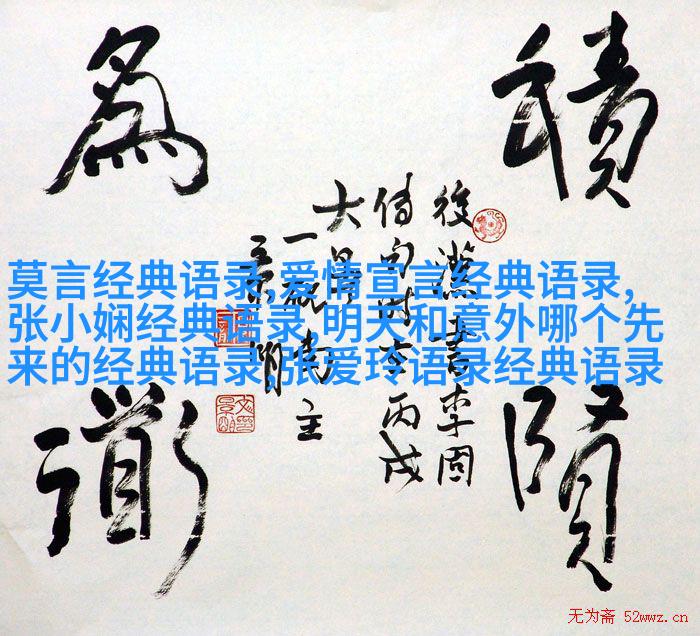 積賢
為衜
後漢書李固
傳句時在丙戌
莫言经典语录,爱情宣言经典语录,
张小娴经典语录,明天和意外哪个先
来的经典语录,张爱玲语录经典语录
无为斋 52wwz.cn